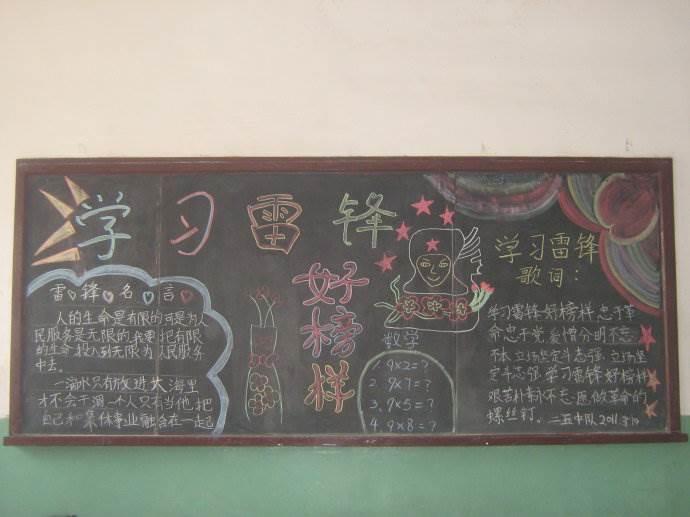 学习雷锋
好榜样
雷锋名言
人的生命是有限的可是为人
民服务是无限的我要把有限
的生命投入到无限为人民服务
中去。
一滴水只有放进大海里
才不会干涸一个人只有当他把
自己和集体事业融合在一起
数学
1. 9×2=?
2. 9×7=?
3. 9×5=?
4. 9×8=?
学习雷锋
歌词:
学习雷锋好榜样忠于革
命忠于党爱憎分明不忘
本立场坚定斗志强立场坚
定斗志强学习雷锋好榜样
艰苦朴素永不忘愿做革命的
螺丝钉。二五中队2011.